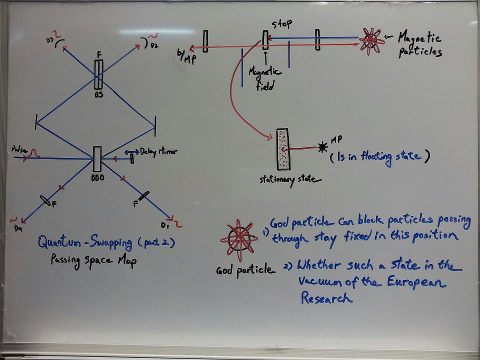 D3
F
D2
BS
Pulse
BBO
Delay Mirror
F
F
D4
D1
Quantum-Swapping (part 2)
Passing space Map
stop
by MP
Magnetic
field
Magnetic
particles
MP
(Is in floating state)
stationary state
God particle
1) God particle can block particles passing
through stay fixed in this position
2) Whether such a state in the
vacuum of the European
Research